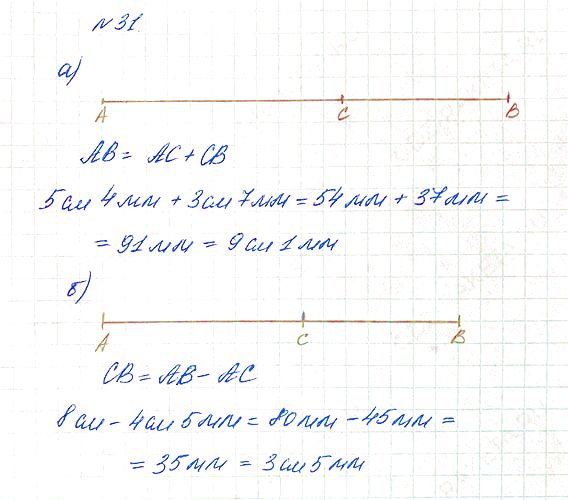 №31.
а)
A C B
AB = AC + CB
5см 4мм + 3см 7мм = 54мм + 37мм =
= 91мм = 9см 1мм
б)
A C B
CB = AB - AC
8см - 4см 5мм = 80мм - 45мм =
= 35мм = 3см 5мм